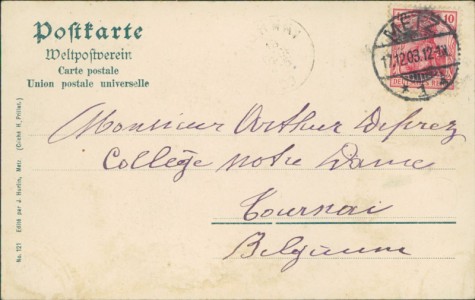 Postkarte
Weltpostverein
Carte postale
Union postale universelle
10
METZ
17.12.03.12-1N.
* 1
Monsieur Arthur Deprez
Collège Notre Dame
Tournai
Belgium
No. 121 Edité par J. Hurlin, Metz.